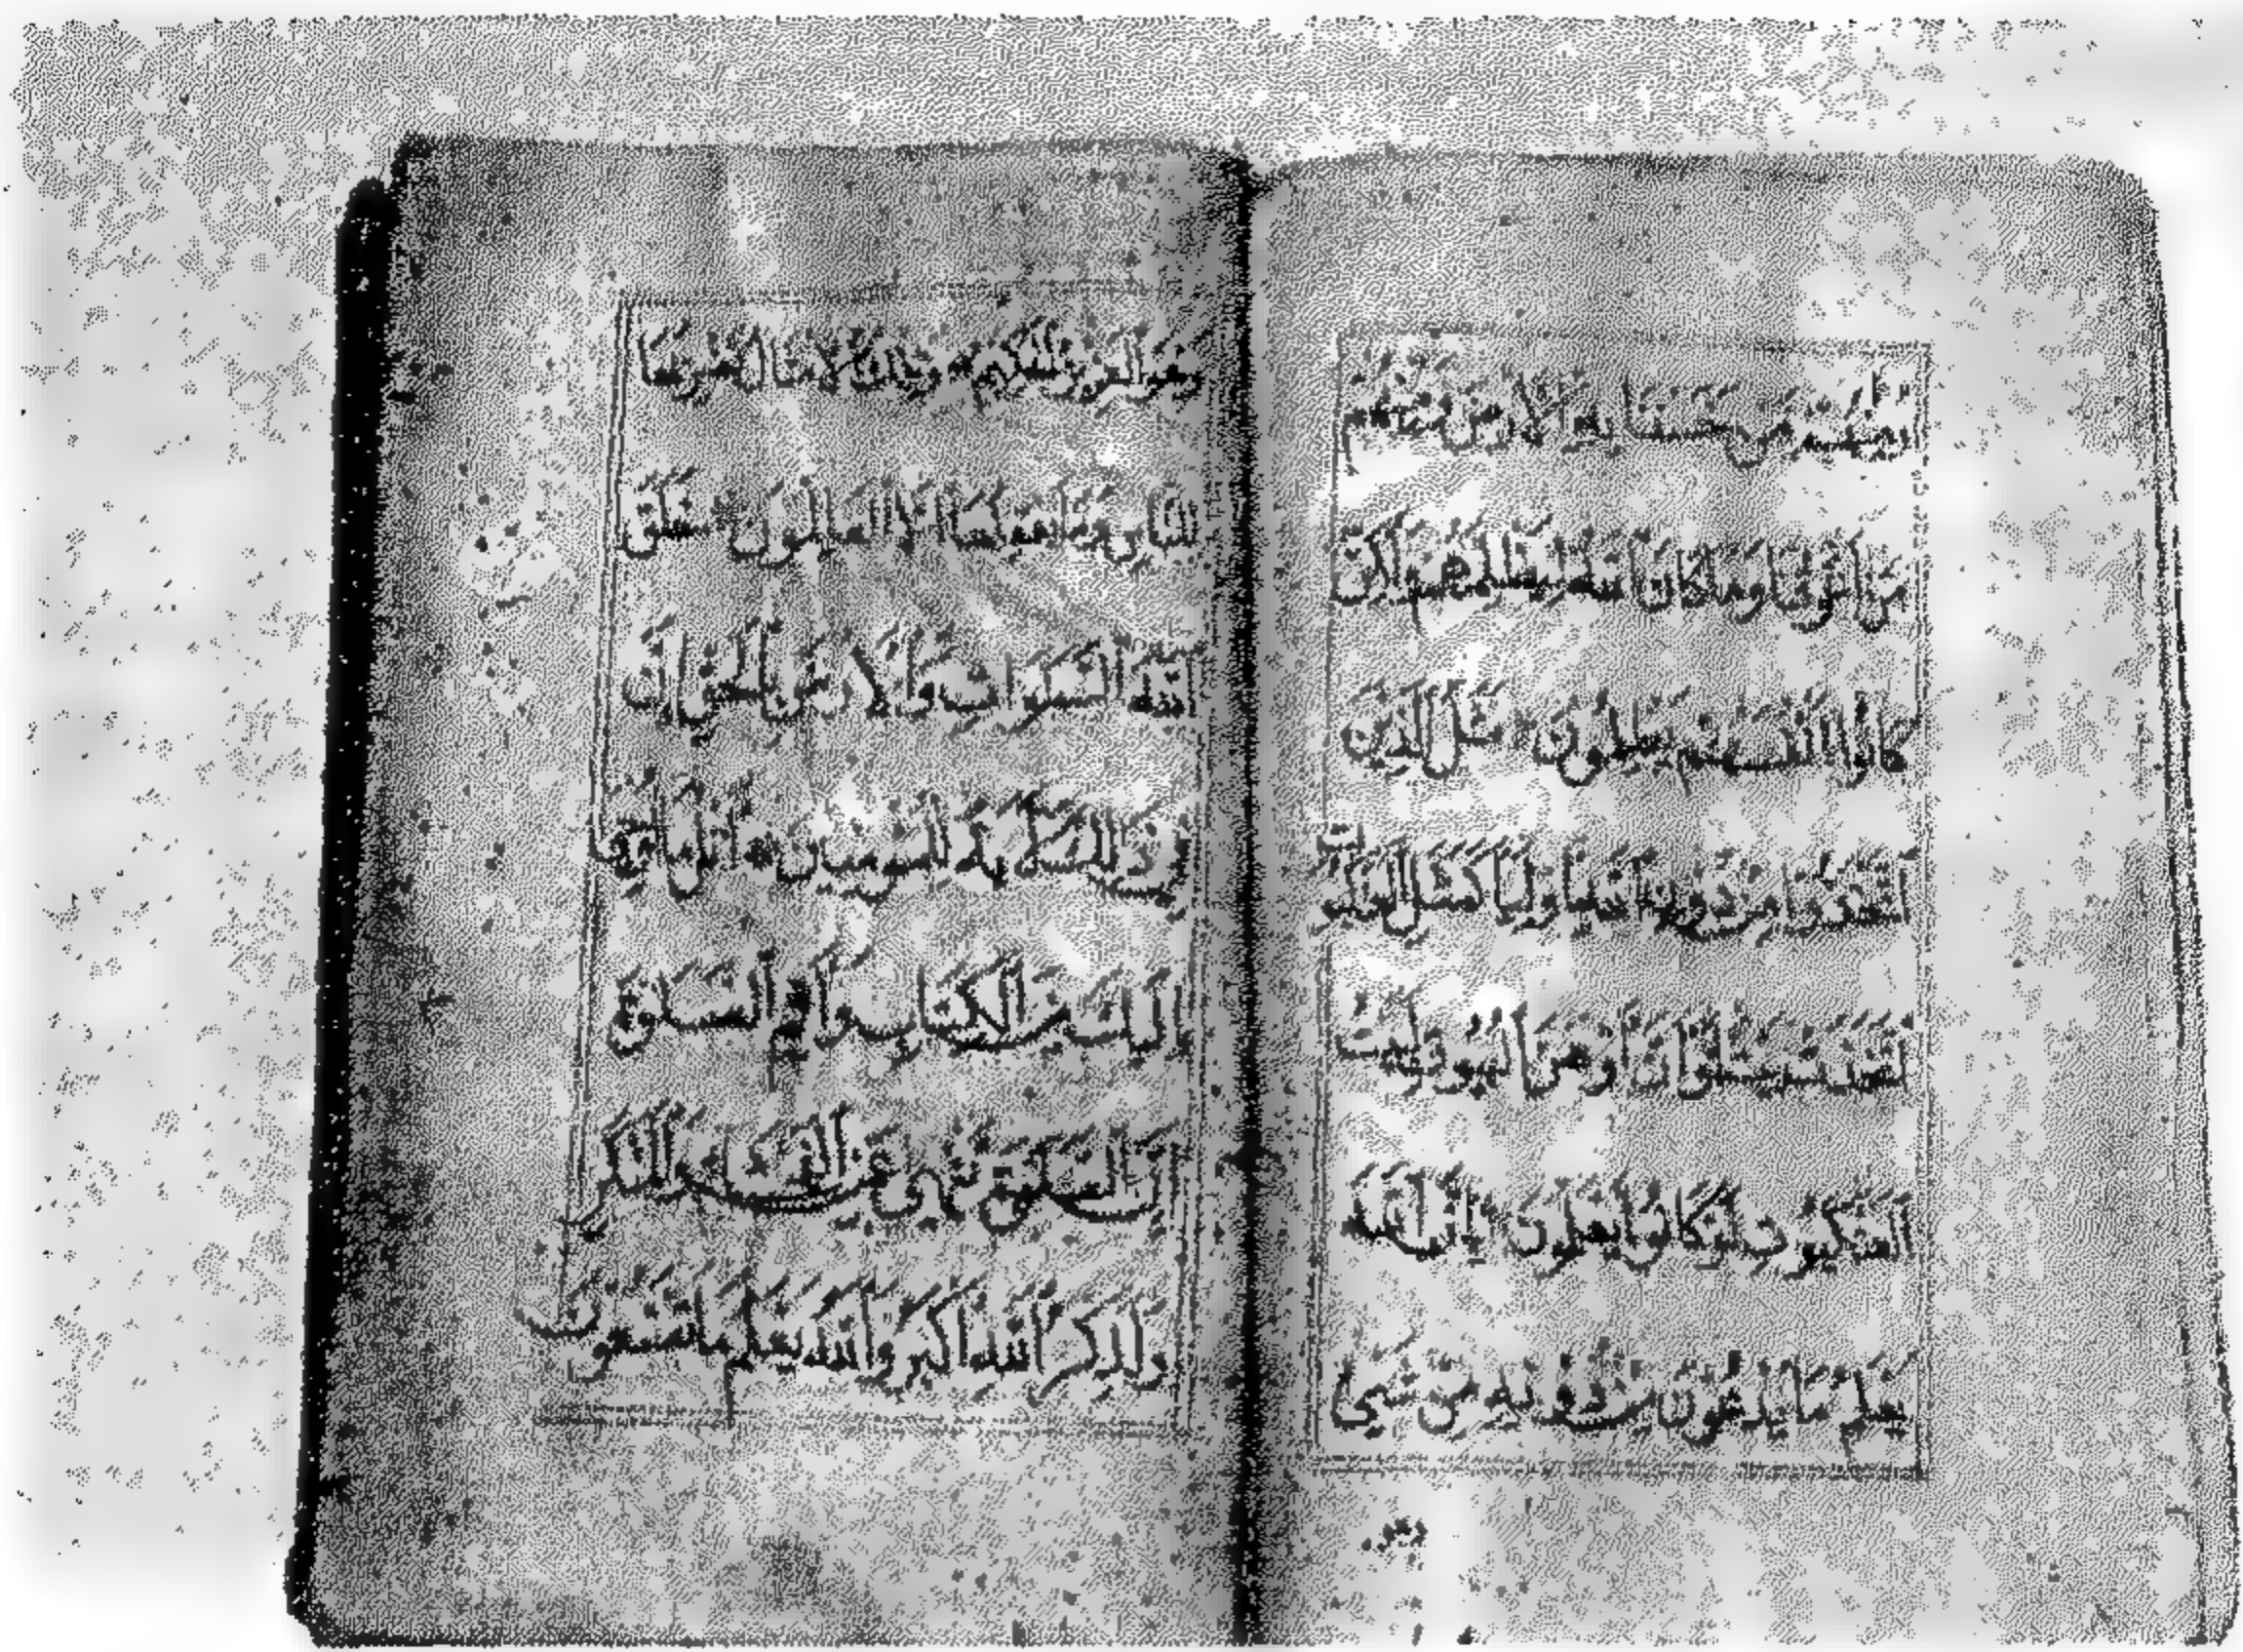 من خسفنا به الارض ومنهم
من اغرقنا وما كان الله ليظلمهم ولكن
كانوا انفسهم يظلمون مثل الذين
اتخذوا من دون الله اولياء كمثل العنكبوت
اتخذت بيتا وان اوهن البيوت لبيت
العنكبوت لو كانوا يعلمون ان الله
يعلم ما يدعون من دونه من شىء
وهو
وهو العزيز الحكيم وتلك الامثال نضربها
للناس وما يعقلها الا العالمون خلق
الله السموات والارض بالحق ان
في ذلك لاية للمؤمنين اتل ما اوحي
اليك من الكتاب واقم الصلوة
ان الصلوة تنهى عن الفحشاء والمنكر
ولذكر الله اكبر والله يعلم ما تصنعون